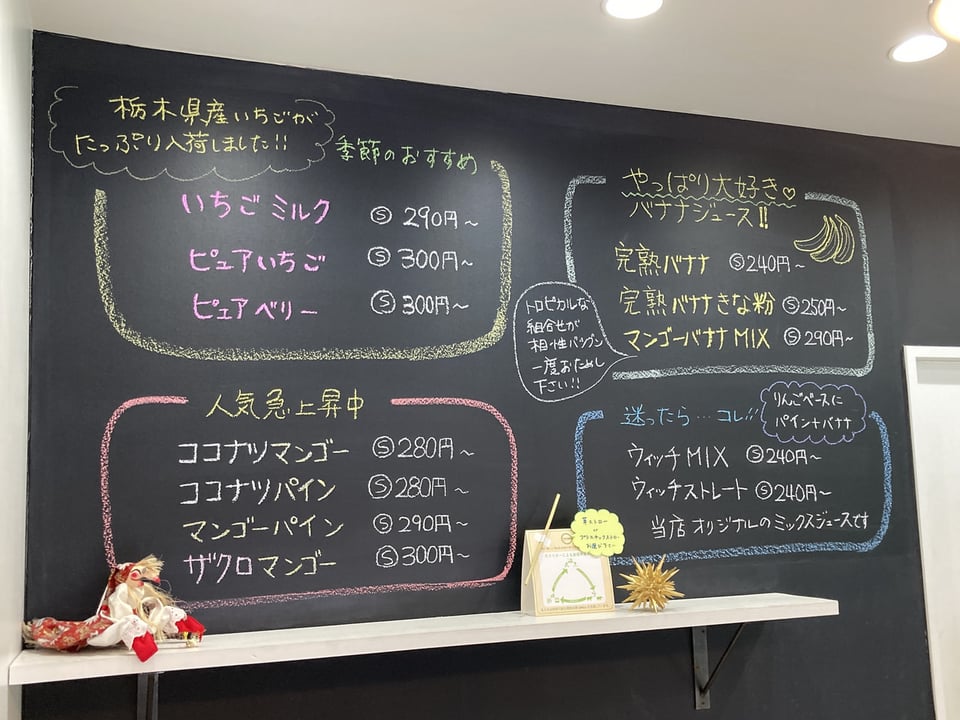 栃木県産いちごが
たっぷり入荷しました!!
季節のおすすめ
いちごミルク Ⓢ290円~
ピュアいちご Ⓢ300円~
ピュアベリー Ⓢ300円~
人気急上昇中
ココナツマンゴー Ⓢ280円~
ココナツパイン Ⓢ280円~
マンゴーパイン Ⓢ290円~
ザクロマンゴー Ⓢ300円~
やっぱり大好き♡
バナナジュース!!
完熟バナナ Ⓢ240円~
完熟バナナきな粉 Ⓢ250円~
マンゴーバナナMIX Ⓢ290円~
トロピカルな
組合せが
相性バツグン
一度おためし
下さい!!
迷ったら…コレ!!
りんごベースに
パイン+バナナ
ウィッチMIX Ⓢ240円~
ウィッチストレート Ⓢ240円~
当店オリジナルのミックスジュースです